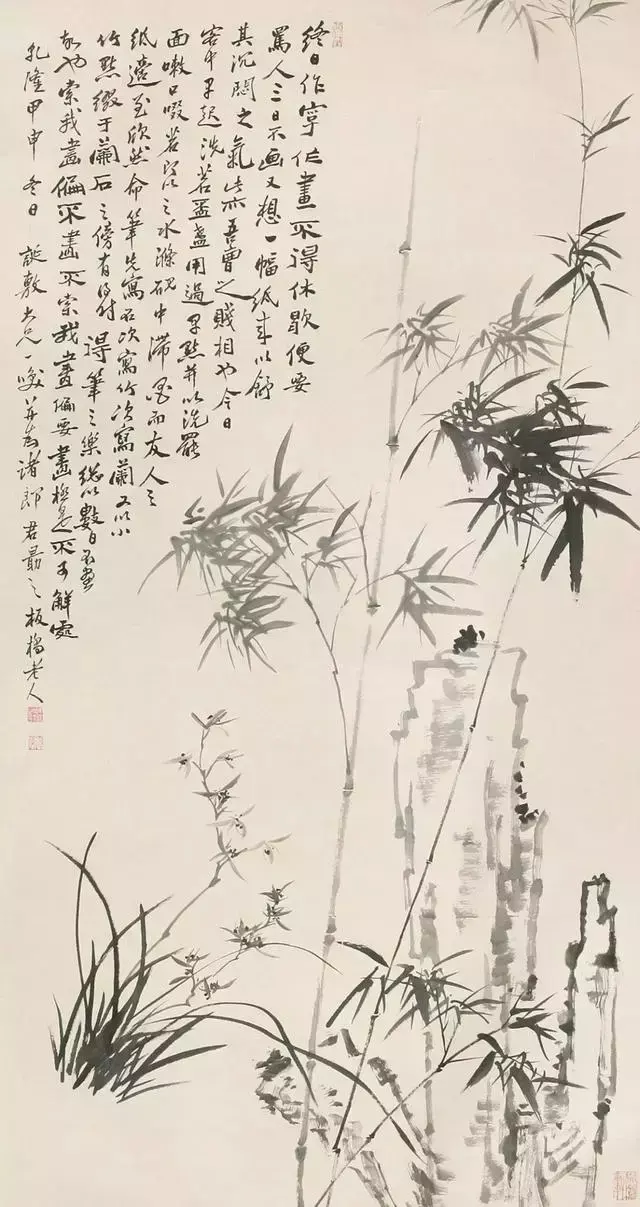 終日作字作畫不得休歇便要
罵人三日不画又想一幅紙來以舒
其沉悶之氣此亦吾曹之賤相也今日
客中早起洗茗盃盞用過早點并以洗罷
面嗽口啜茗以之水滌硯中滯墨而友人之
紙適至欣然命筆先寫石次寫竹次寫蘭又以小
竹點綴于蘭石之傍有得筆之樂總以數日不畫
故也索我畫偏不畫不索我畫偏要畫極是不可解處
乾隆甲申冬日誕敷老兄一噱并為諸郎君勖之板橋老人